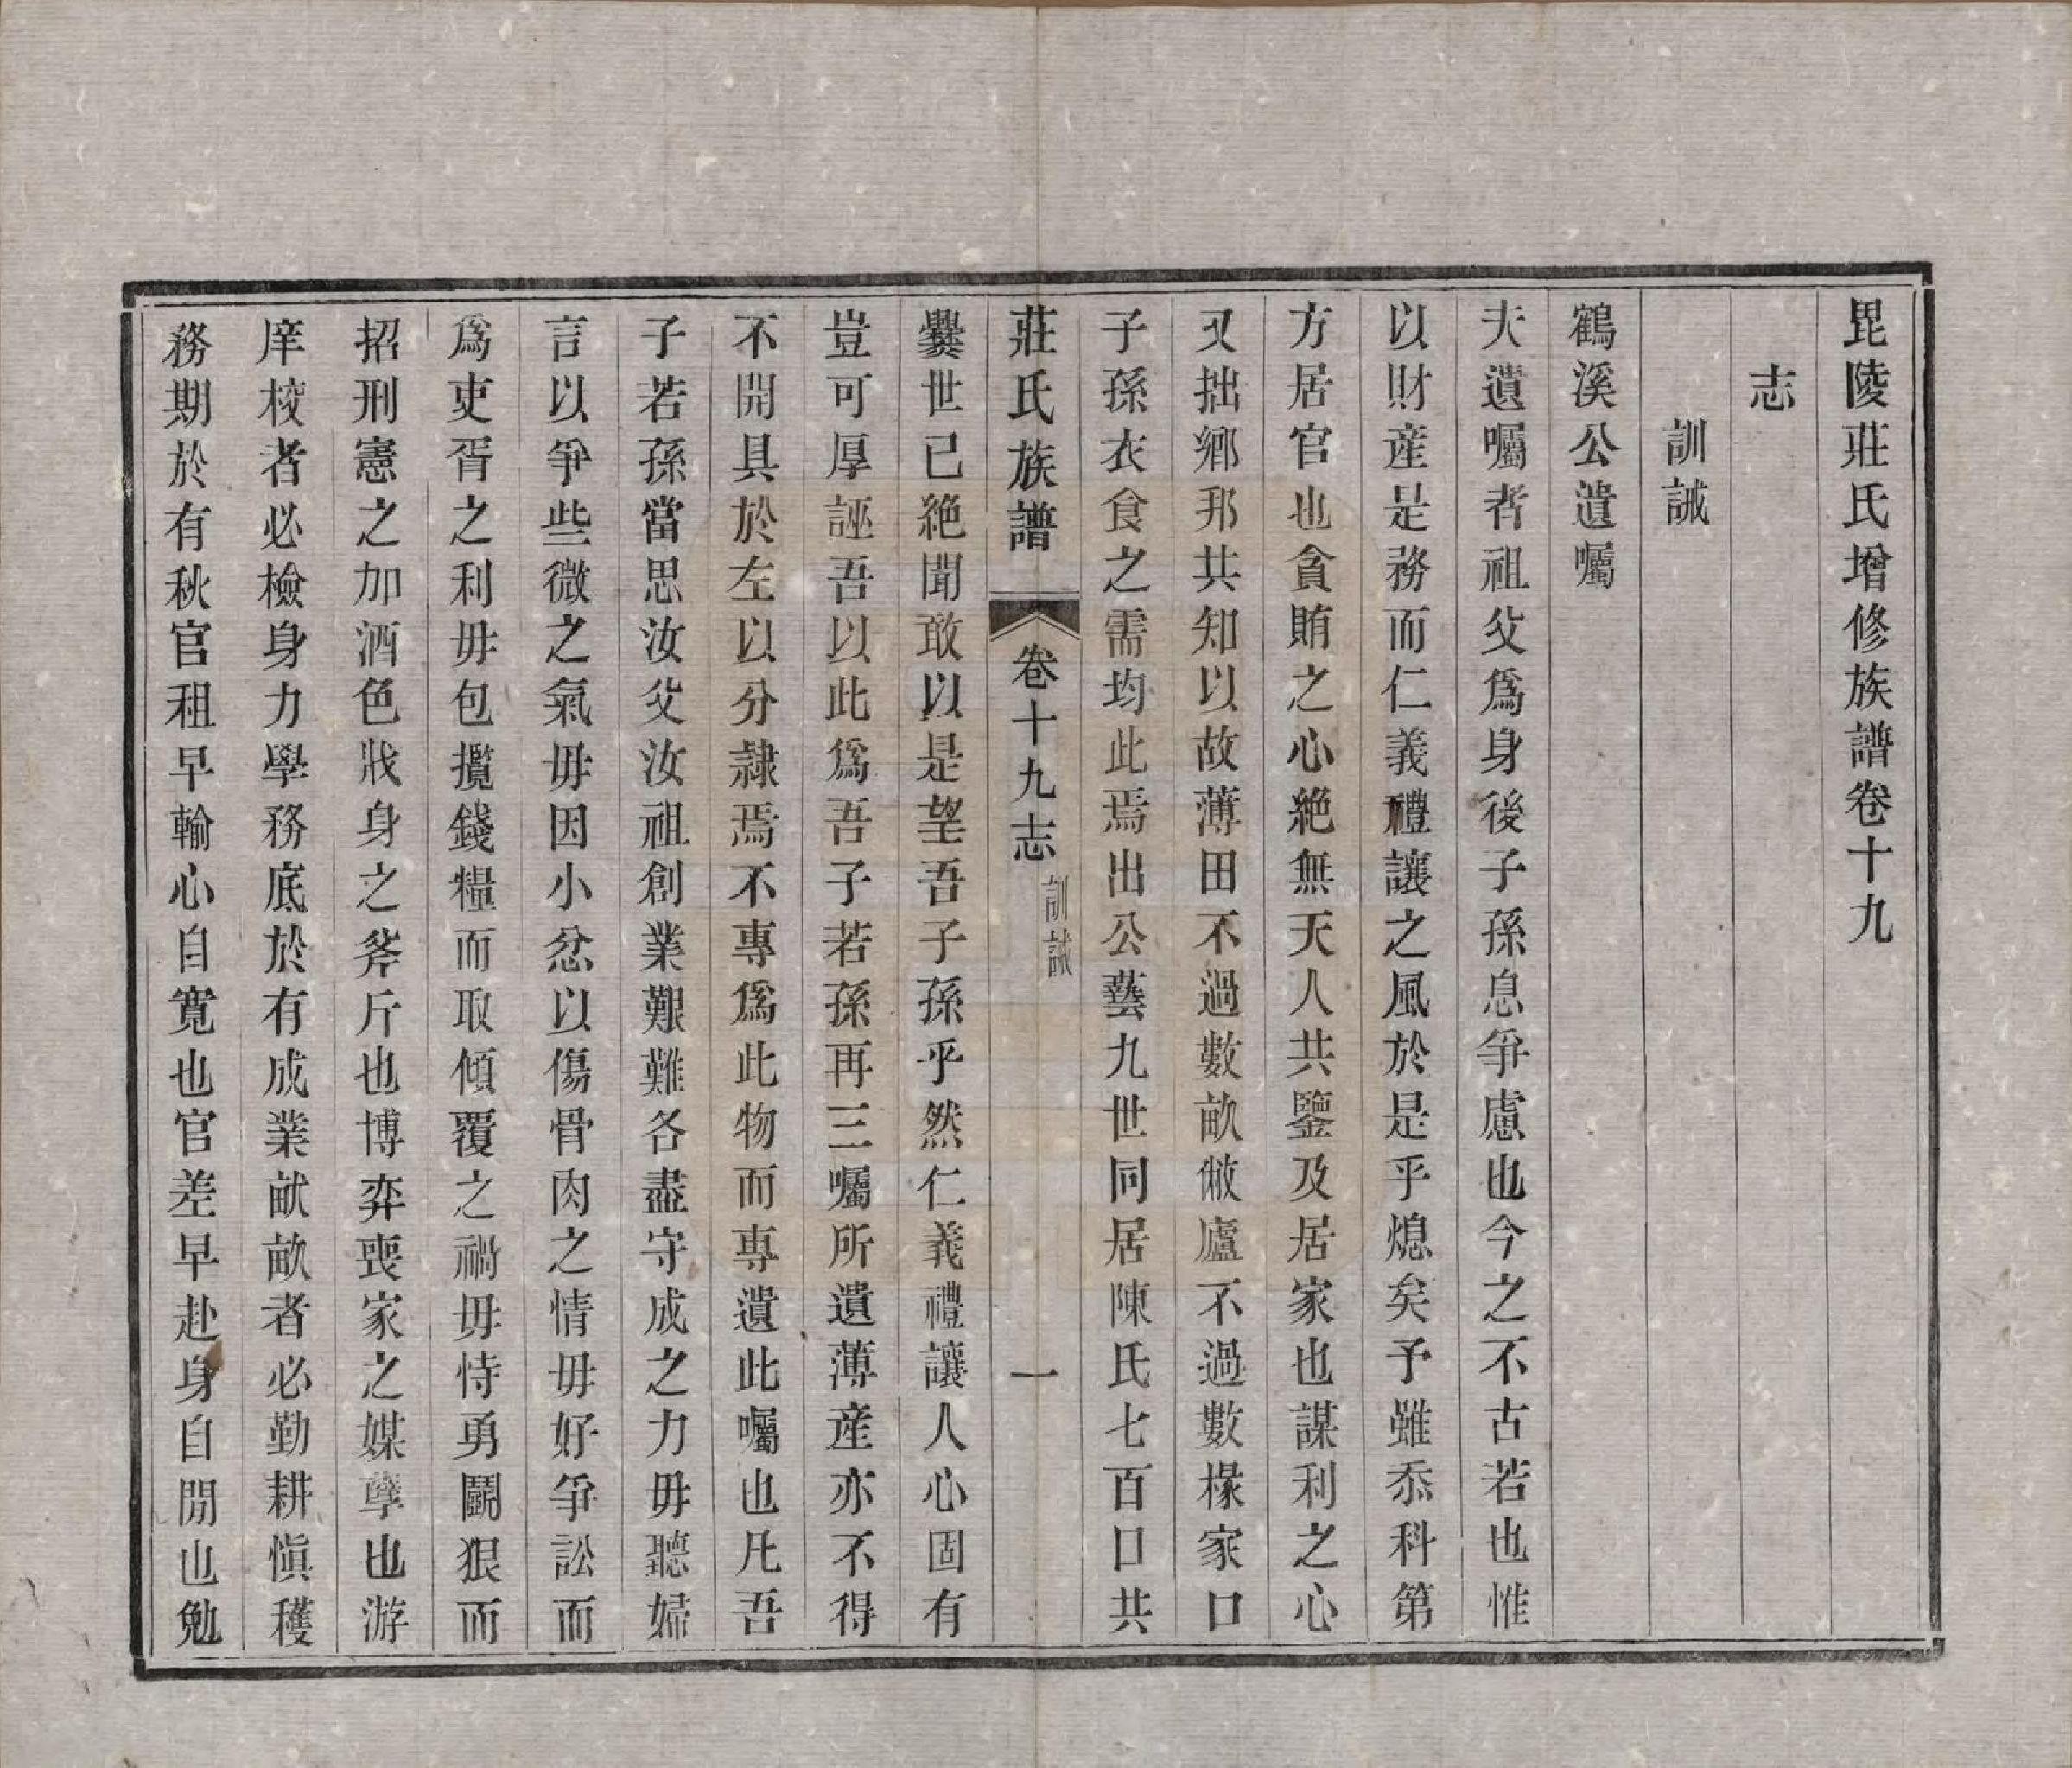 毘陵莊氏增修族譜卷十九
志
訓誡
鶴溪公遺囑
夫遺囑者祖父爲身後子孫息爭慮也今之不古若也惟
以財産是務而仁義禮讓之風於是乎熄矣予雖忝科第
方居官也貪賄之心絶無天人共鑒及居家也謀利之心
又拙鄉邦共知以故薄田不過數畝敝廬不過數椽家口
子孫衣食之需均此焉出公藝九世同居陳氏七百口共
莊氏族譜 卷十九志 訓誡 一
爨世已絶聞敢以是望吾子孫乎然仁義禮讓人心固有
豈可厚誣吾以此爲吾子若孫再三囑所遺薄産亦不得
不開具於左以分隷焉不專爲此物而專遺此囑也凡吾
子若孫當思汝父汝祖創業艱難各盡守成之力毋聽婦
言以爭些微之氣毋因小忿以傷骨肉之情毋好爭訟而
爲吏胥之利毋包攬錢糧而取傾覆之禍毋恃勇鬭狠而
招刑憲之加酒色戕身之斧斤也博弈喪家之媒孽也游
庠校者必檢身力學務底於有成業畎畝者必勤耕愼穫
務期於有秋官租早輸心自寬也官差早赴身自閒也勉